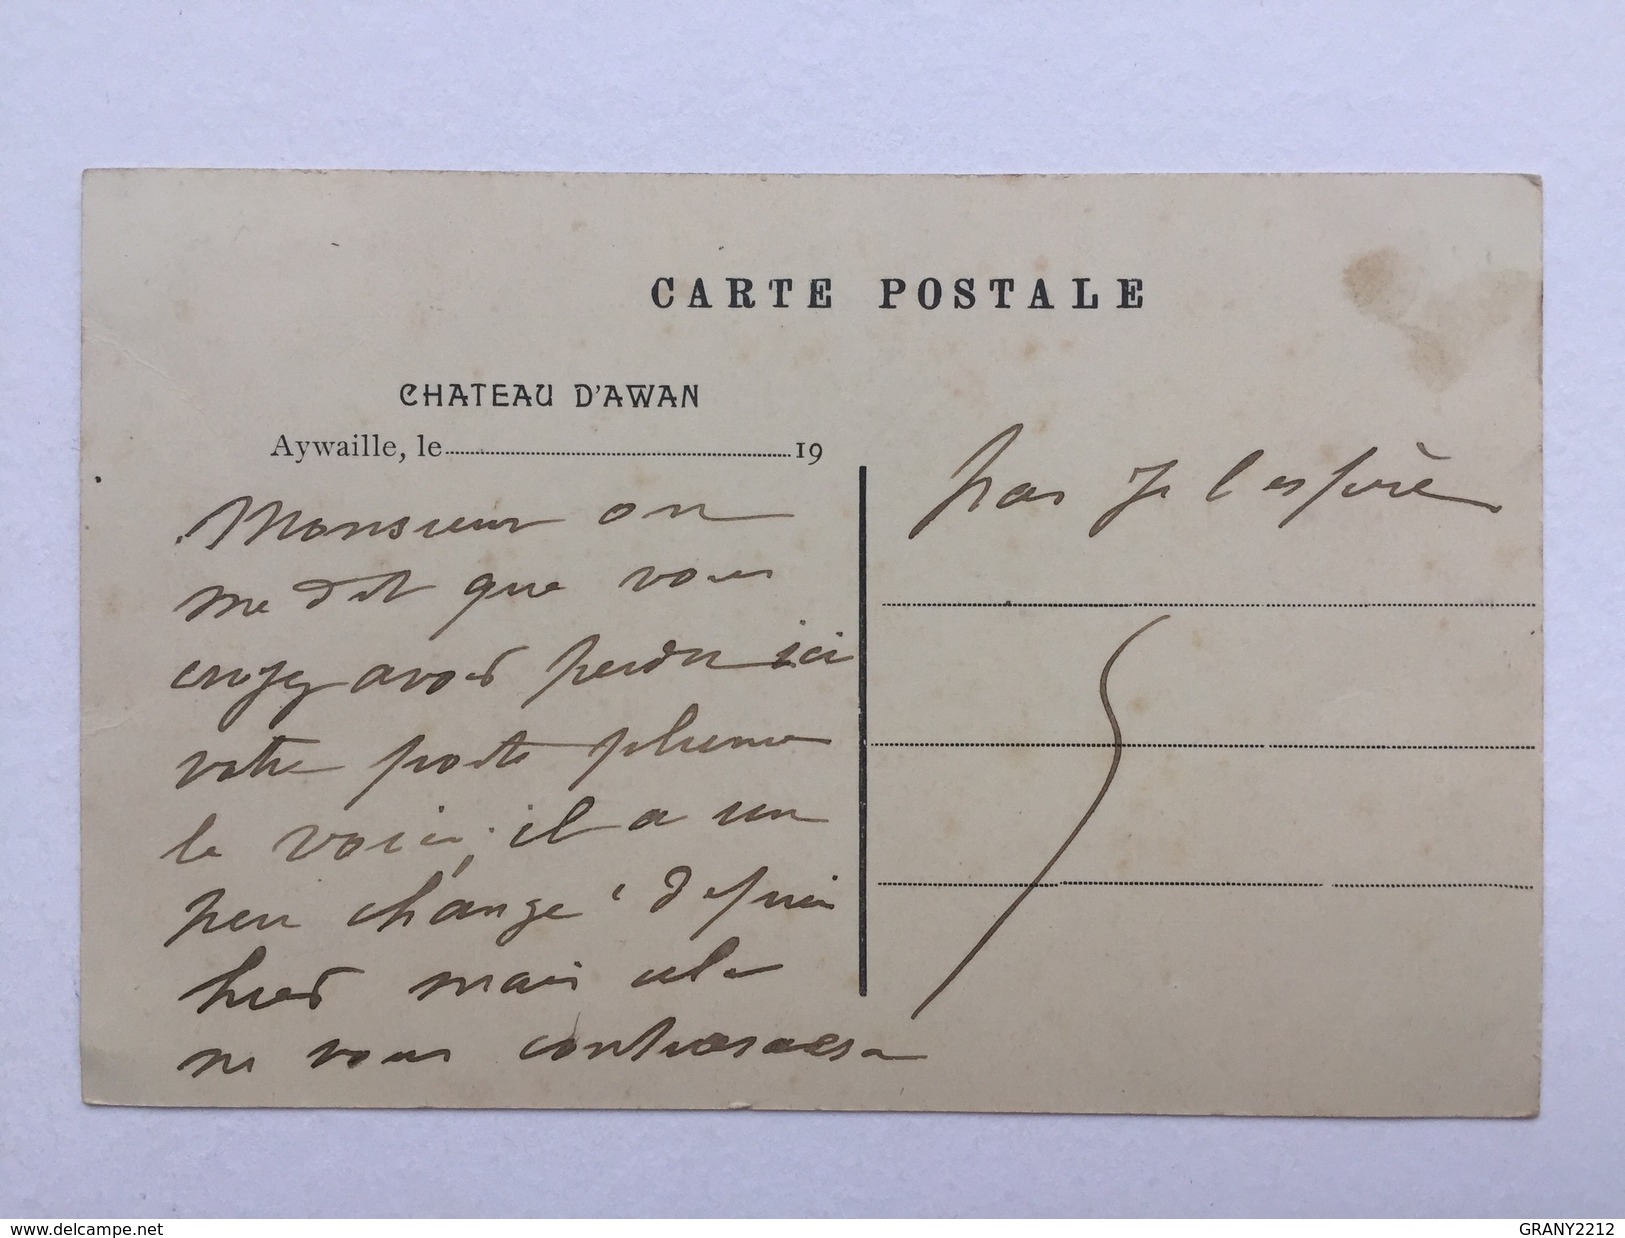 CARTE POSTALE
CHATEAU D'AWAN
Aywaille, le 19
Monsieur on
me dit que vous
croyez avoir perdu ici
votre porte plume
le voici, il a un
peu changé depuis
hier mais cela
ne vous contrariera
pas je l'espère
www.delcampe.net
GRANY2212